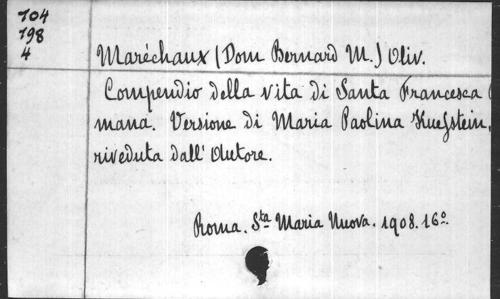 104
198
4
Maréchaux (Dom Bernard M.) Oliv.
Compendio della vita di Santa Francesca
mana. Versione di Maria Paolina Kuefstein,
riveduta dall' Autore.
Roma. Sta Maria Nuova. 1908. 16º.